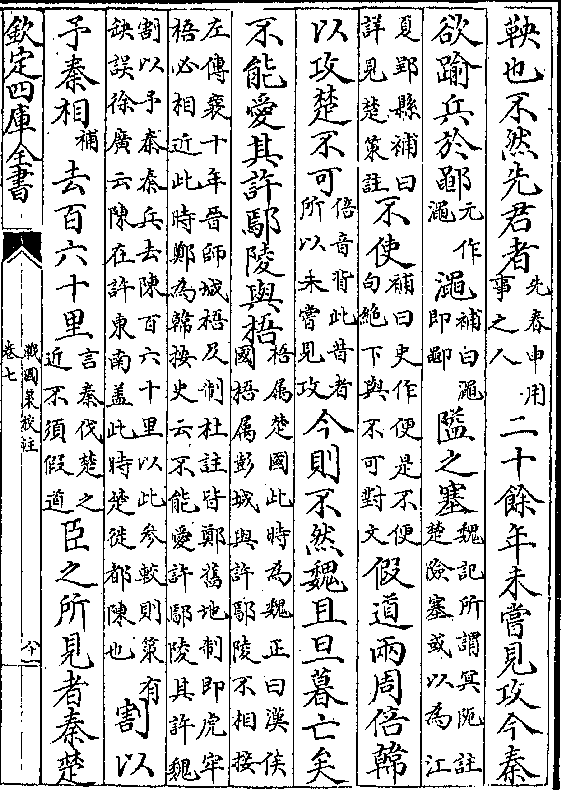 鞅也不然先君者先春申用事之人二十餘年未嘗見攻今秦
欲踰兵於鄳元作澠澠補曰澠即鄳隘之塞魏記所謂冥阨註楚險塞或以為江
夏鄳縣補曰詳見楚策註不使補曰史作便是不便句絶下與不可對文假道兩周倍韓
以攻楚不可倍音背此昔者所以未嘗見攻今則不然魏且旦暮亡矣
不能愛其許鄢陵與梧梧屬楚國此時為魏正曰漢侯國梧屬彭城與許鄢陵不相接
左傳襄十年晉師城梧及制杜註皆鄭舊地制即虎牢梧必相近此時鄭為韓按史云不能愛許鄢陵其許魏
割以予秦秦兵去陳百六十里以此參較則策有缺誤徐廣云陳在許東南蓋此時楚徙都陳也割以
予秦相補去百六十里言秦伐楚之近不須假道臣之所見者秦楚
欽定四庫全書
戰國策校註
卷七